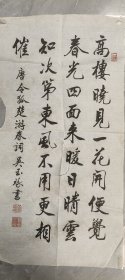 高樓曉見一花開便覺
春光四面來暖日晴雲
知次第東風不用更相
催 唐令狐楚游春詞 吴玉啟書